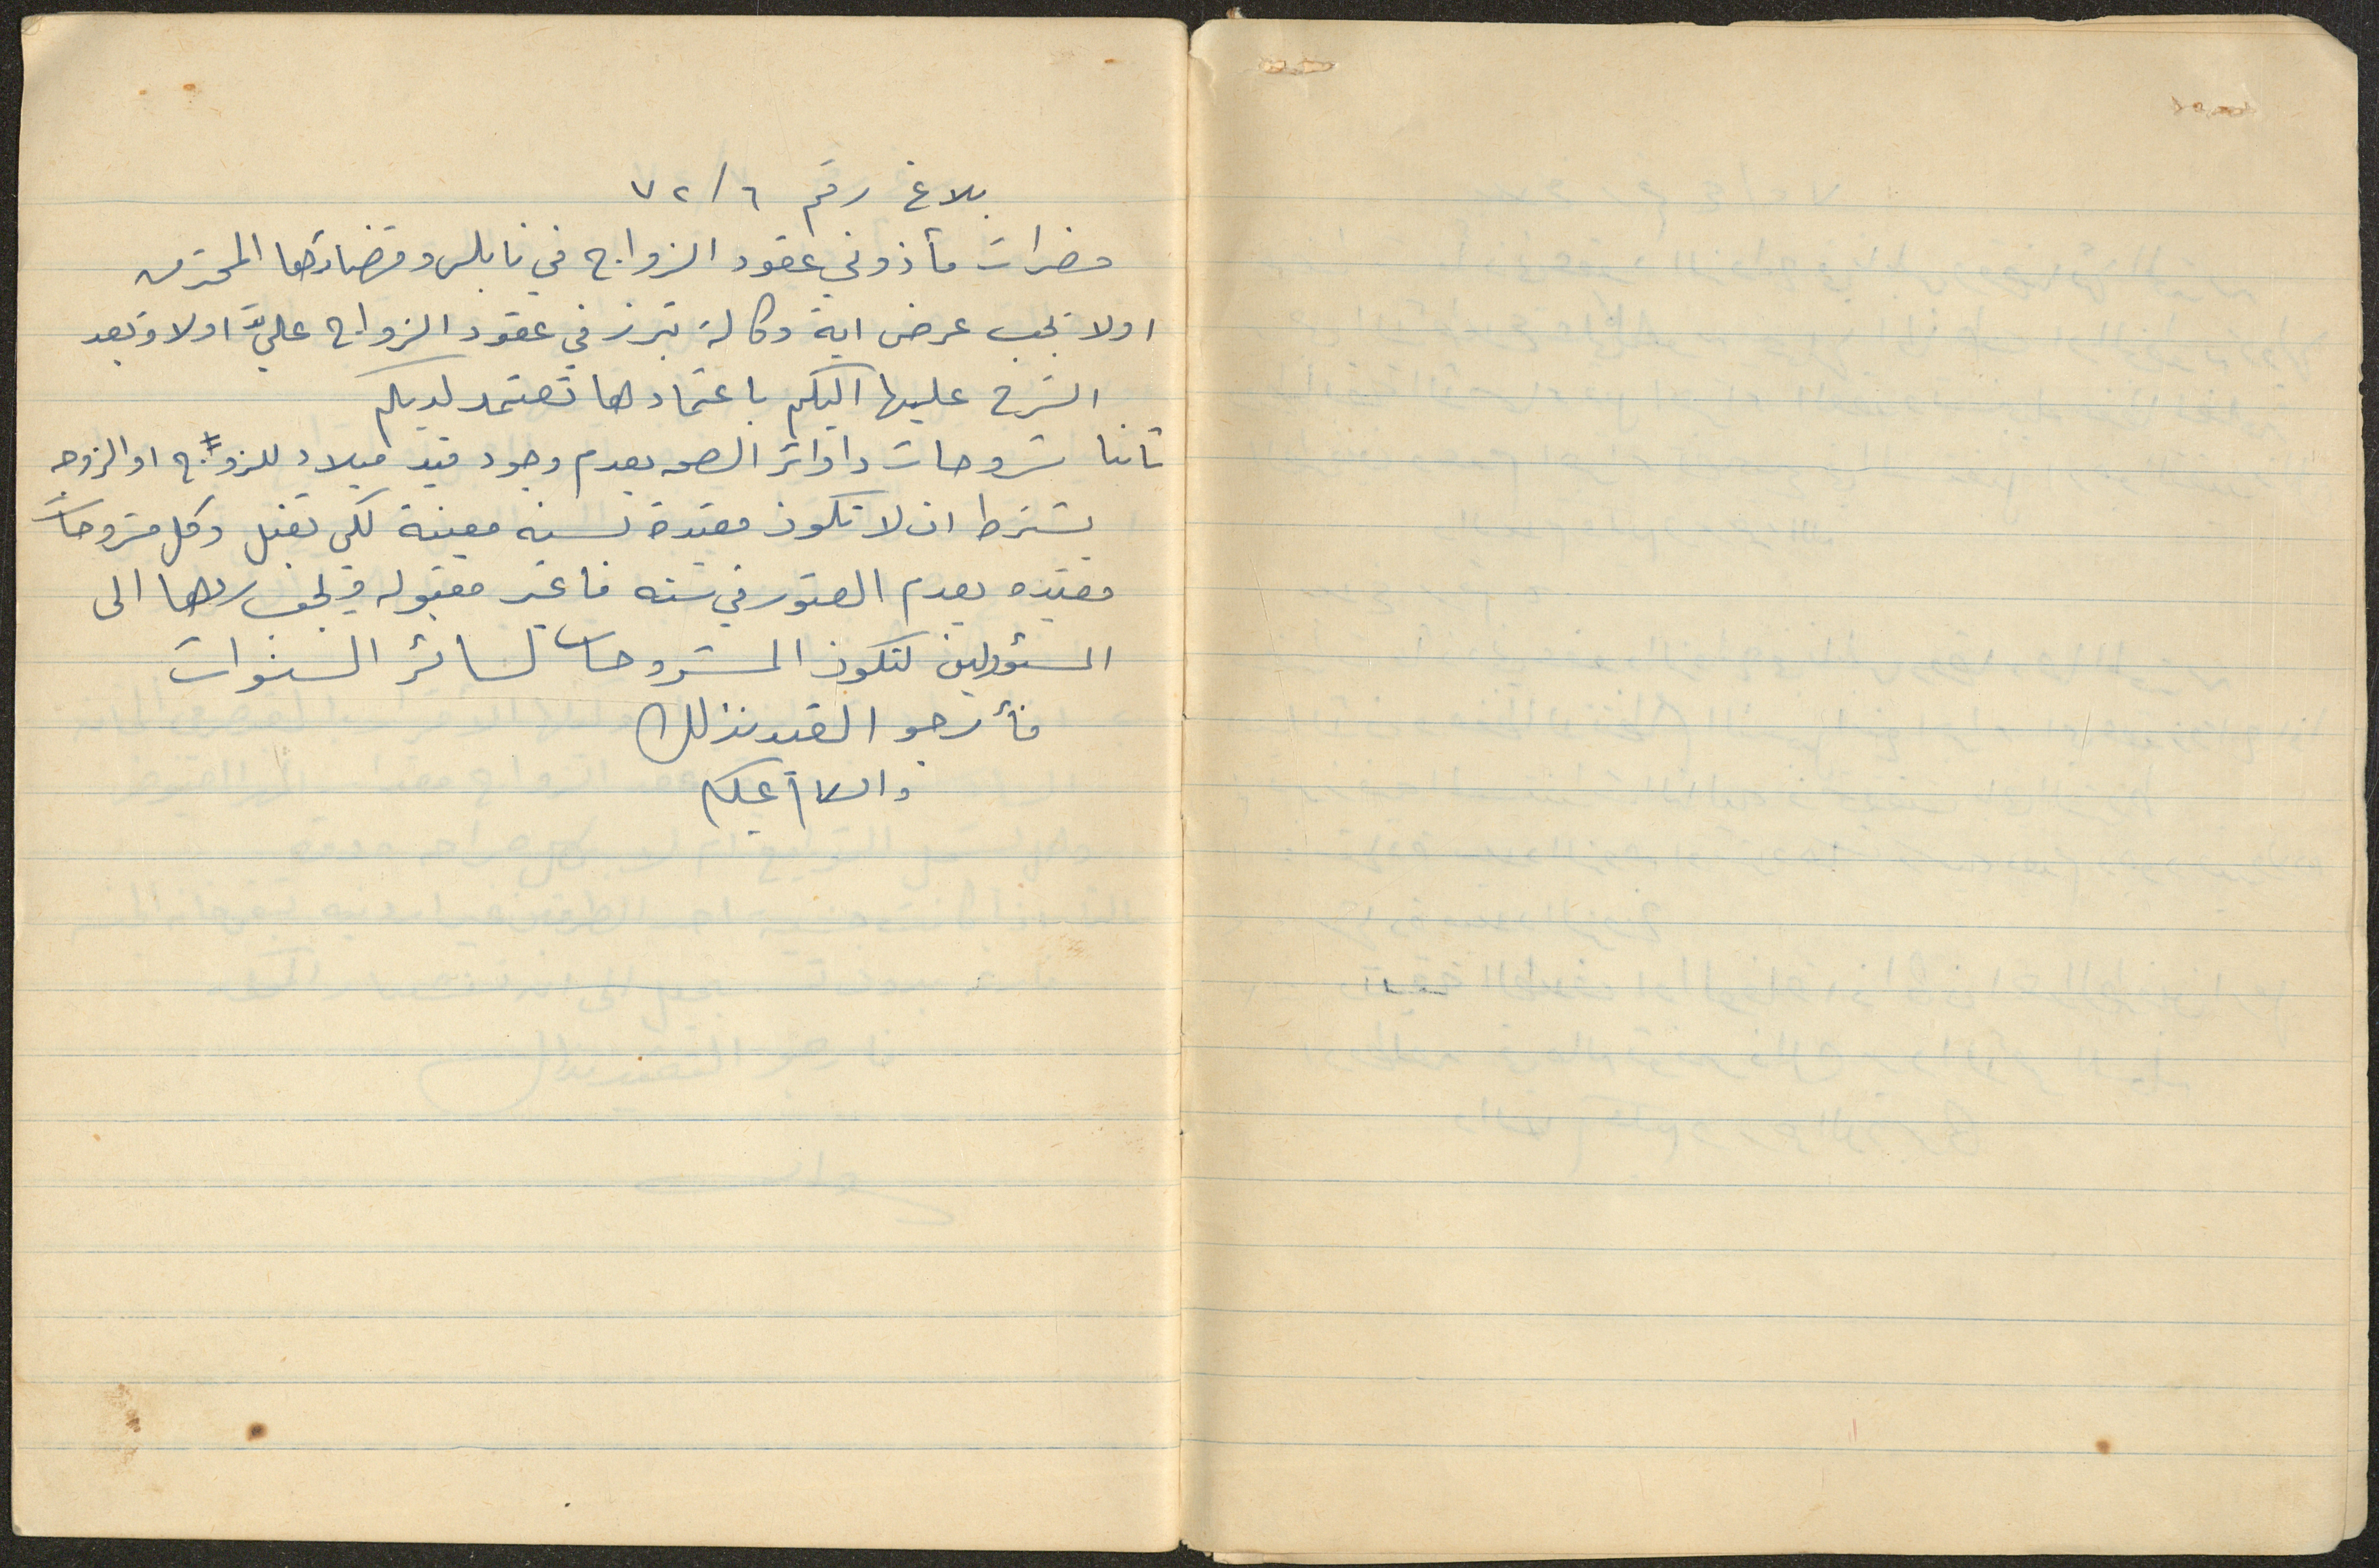 بلاغ رقم ٦ / ٧٢
حضرات مأذوني عقود الزواج في نابلس وقضاءها المحترمين
اولا يجب عرض اية وكالة تبرز في عقود الزواج عليّ اولا وبعد
الشرح عليها اليكم باعتمادها تعتمد لديكم
ثانيا شروحات دوائر الصحه بعدم وجود قيد ميلاد للزوج او الزوجه
يشترط ان لا تكون مقيدة بسنه معينة لكي تقبل وكل مشروحات
مقيده بعدم العثور في سنه فا غير مقبوله ويجب ردها الى
المسئولين لتكون المشروحات لسائر السنوات
فأرجو التقيد بذلك
والسلام عليكم